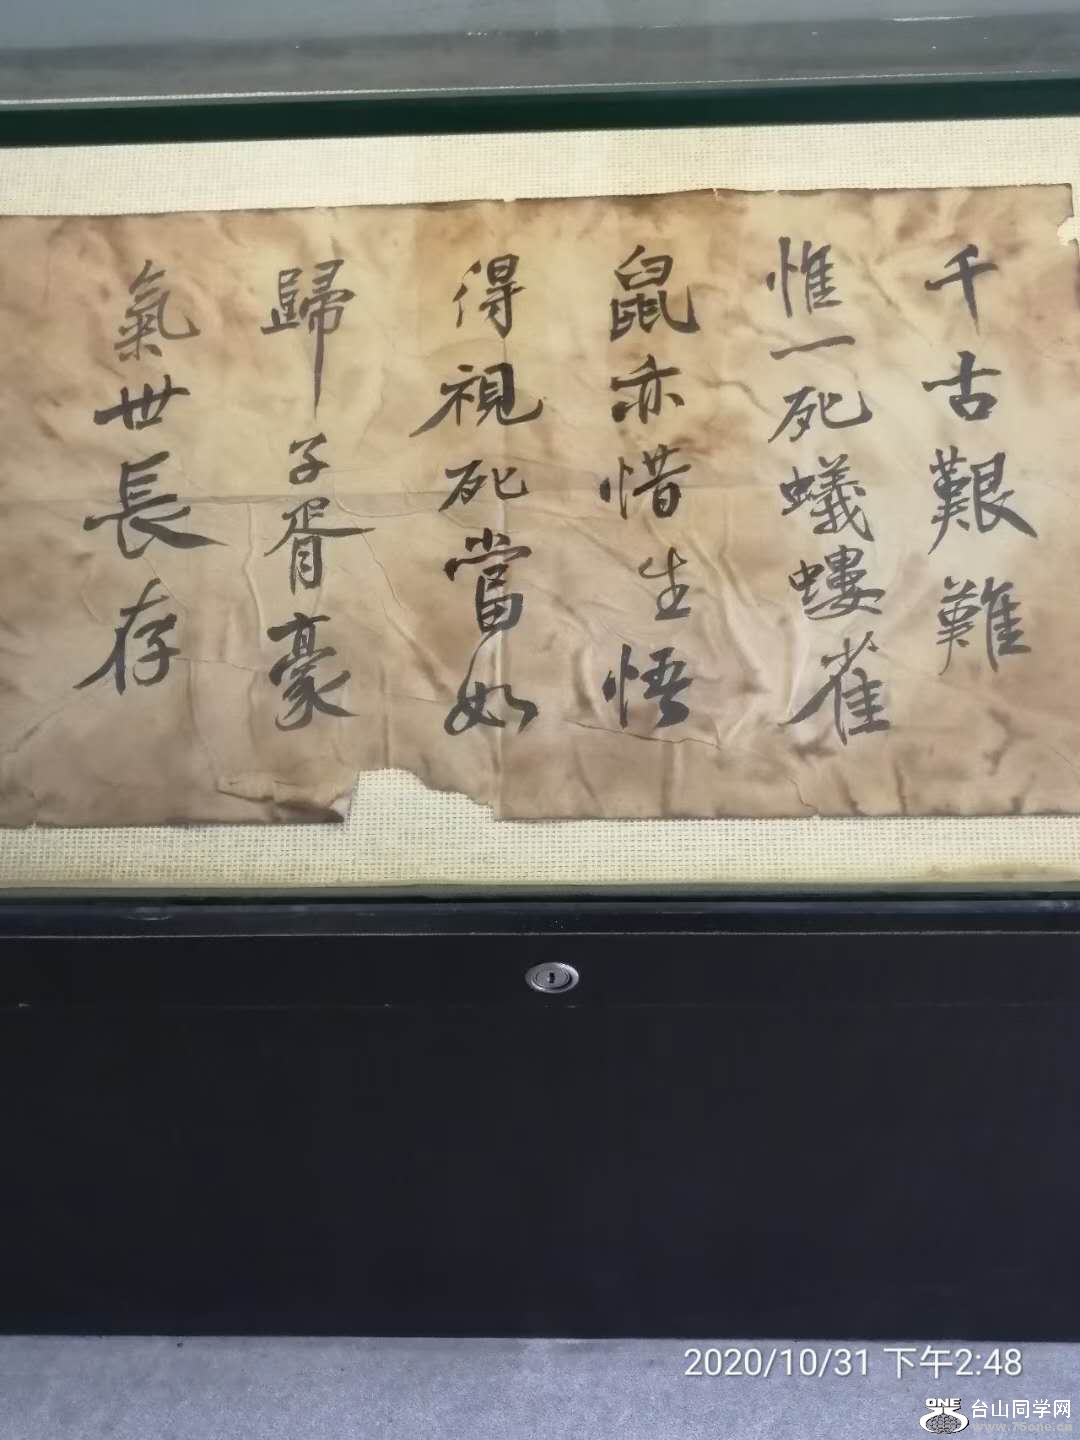 千古艱難
惟一死蟻螻雀
鼠亦惜生悟
得視死當如
歸 子胥豪
氣世長存
2020/10/31 下午2:48
ONE 台山同学网
www.75one.cn